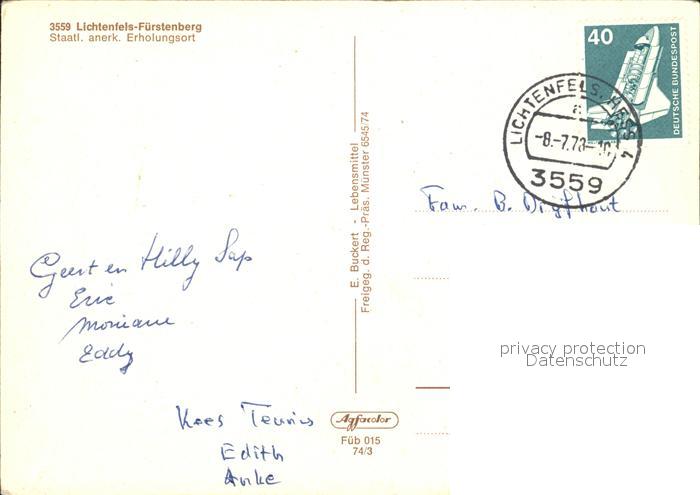 3559 Lichtenfels-Fürstenberg
Staatl. anerk. Erholungsort
40
DEUTSCHE BUNDESPOST
LICHTENFELS, HESS 4
a
-8.-7.78-
3559
E. Buckert - Lebensmittel
Freigeg. d. Reg.-Präs. Münster 6545/74
Fam. B.
Geert en Hilly Sap
Eric
Moniane
Eddy
privacy protection
Datenschutz
Kees Teunis
Edith
Anke
Agfacolor
Füb 015
74/3